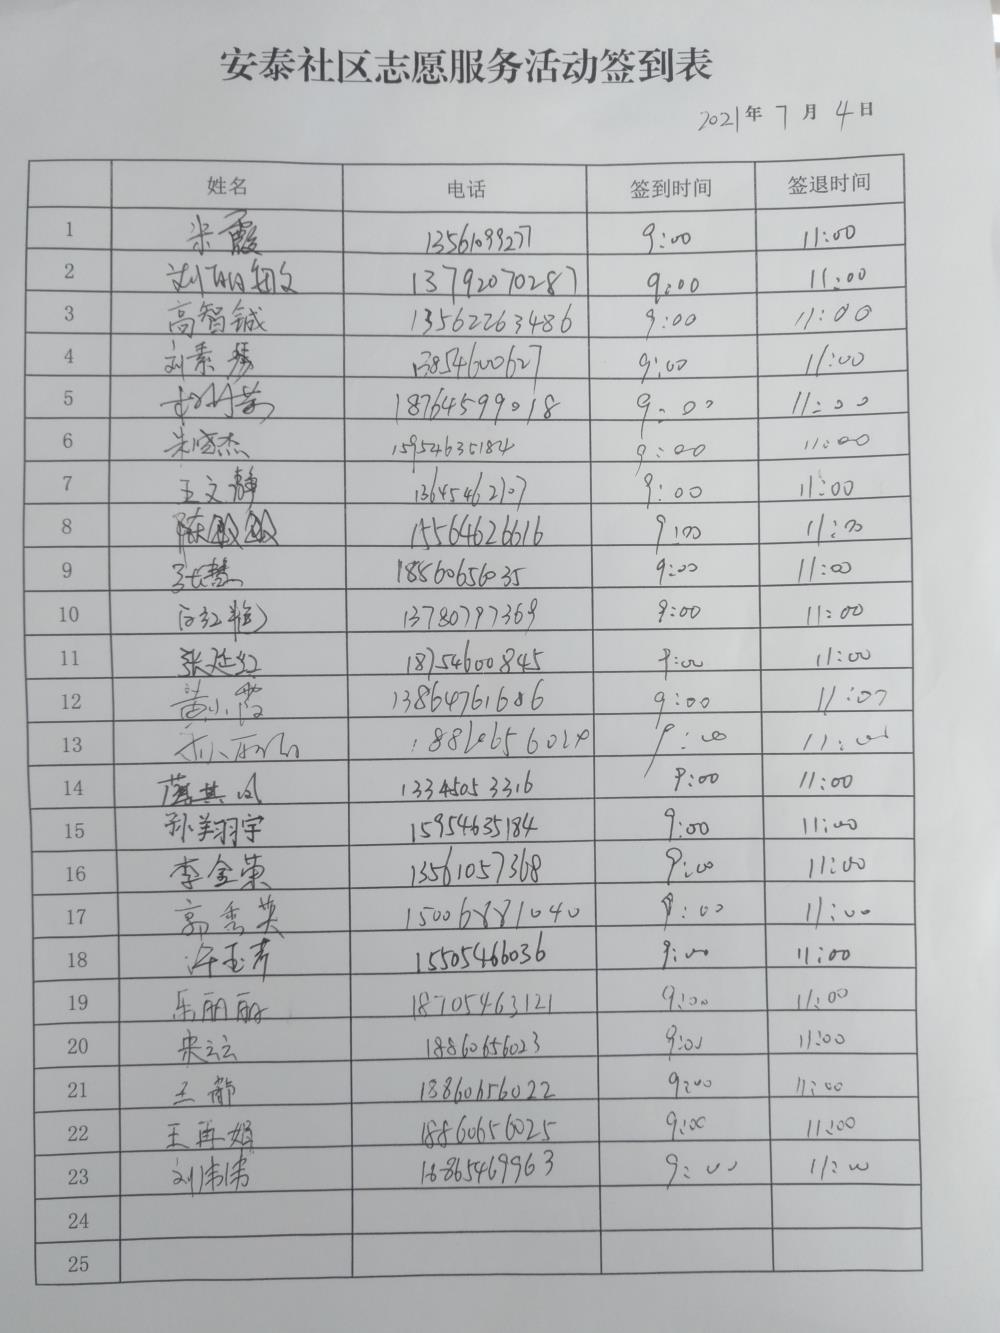 安泰社区志愿服务活动签到表
2021年 7 月 4 日
姓名 电话 签到时间 签退时间
1 宋霞 13561099277 9:00 11:00
2 13792070287 9:00 11:00
3 高智铖 13562263486 9:00 11:00
4 刘素琴 13854600627 9:00 11:00
5 18764599018 9:00 11:00
6 朱晓杰 15954635184 9:00 11:00
7 王文静 13645462707 9:00 11:00
8 陈敏敏 15564626616 9:00 11:00
9 张慧 18860656035 9:00 11:00
10 13780797369 9:00 11:00
11 张廷红 18754600845 9:00 11:00
12 黄小霞 13864761686 9:00 11:00
13 9:00 11:00
14 薄其凤 13345053316 9:00 11:00
15 孙翔宇 15954635184 9:00 11:00
16 李金荣 13561057368 9:00 11:00
17 郭秀英 15006881040 9:00 11:00
18 许玉芳 15505466036 9:00 11:00
19 乐丽丽 18705463121 9:00 11:00
20 宋云云 18860656023 9:00 11:00
21 王静 18860656022 9:00 11:00
22 王再娟 18860656025 9:00 11:00
23 刘伟伟 18865469963 9:00 11:00
24
25